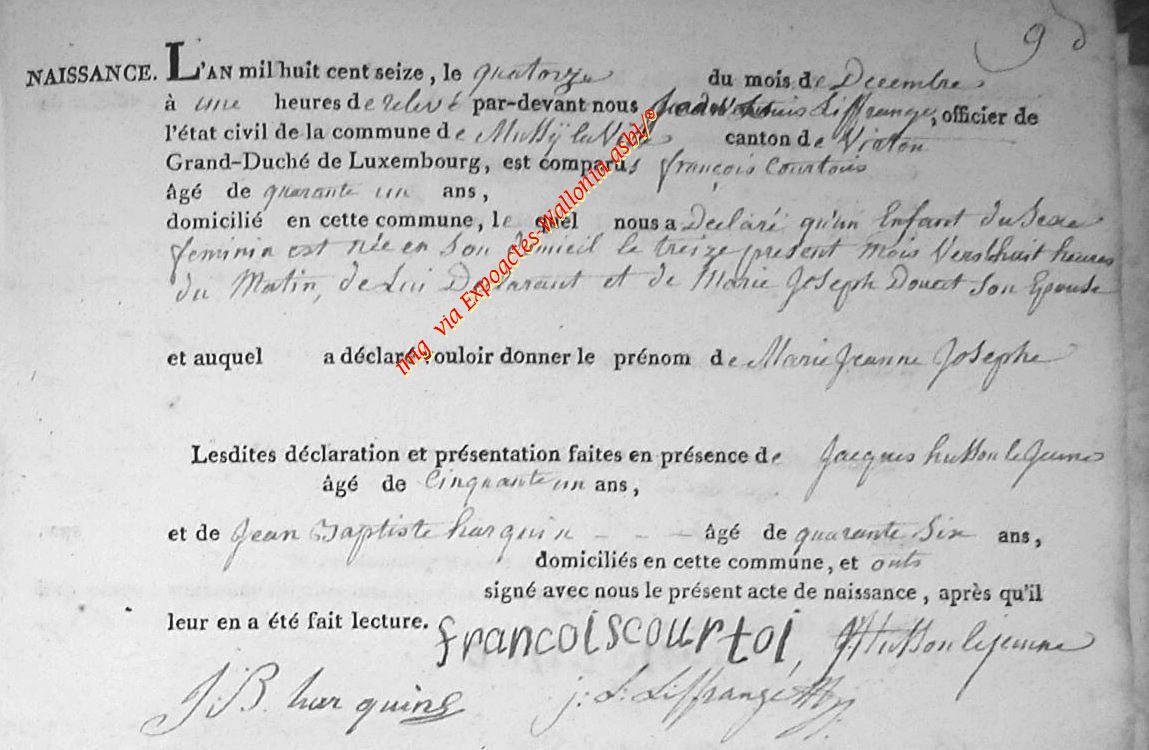 9
NAISSANCE. L'AN mil huit cent seize, le quatorze du mois de Decembre
à une heures de relevé par-devant nous Louis Liffrange, officier de
l'état civil de la commune de Mussÿ la Ville canton de Virton
Grand-Duché de Luxembourg, est comparus françois Courtois
âgé de quarante un ans,
domicilié en cette commune, le quel nous a Declaré qu'un Enfant du Sexe
feminin est née en Son Domicil le treize present mois Vers huit heures
du Matin, de Lui Declarant et de Marie Joseph Douert Son Epouse
et auquel a déclaré vouloir donner le prénom de Marie Jeanne Josephe
Lesdites déclaration et présentation faites en présence de Jacques husson le Jeune
âgé de Cinquante un ans,
et de Jean Baptiste harquin - - - âgé de quarante Six ans,
domiciliés en cette commune, et onts
signé avec nous le présent acte de naissance, après qu'il
leur en a été fait lecture. francoiscourtoi, JHusson lejeune
J:B. harquins j: L: Liffrange
img via Expoactes-Wallonia asbl/®